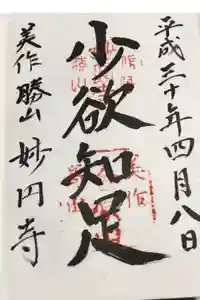 平成三十年四月八日
少欲知足
美作勝山 妙円寺